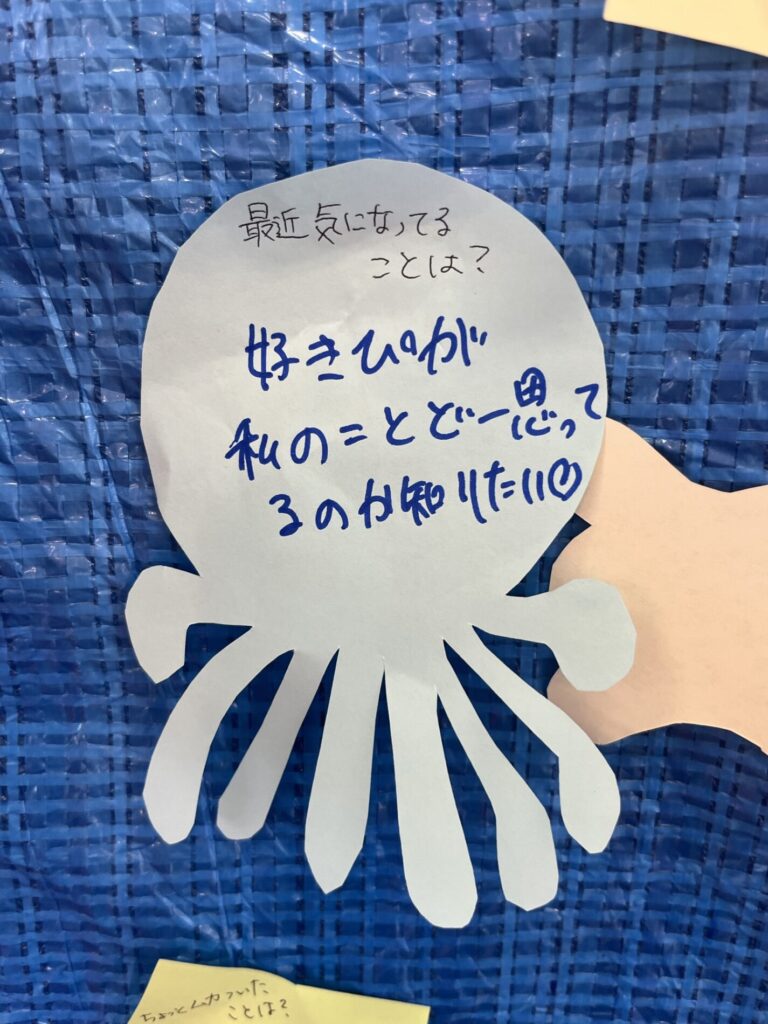 最近気になってる
ことは?
好きぴが
私のことどー思って
るのか知りたい♡
ちょっとムカついた
ことは?